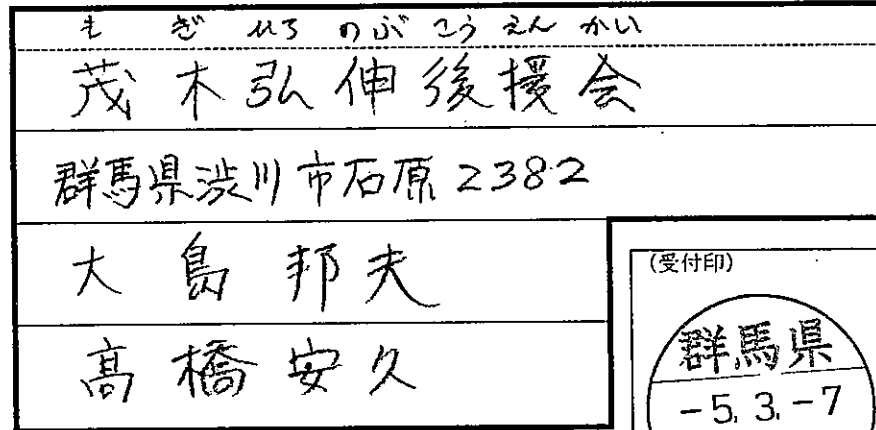 もぎひろのぶこうえんかい
茂木弘伸後援会
群馬県渋川市石原2382
大島邦夫
高橋安久
(受付印)
群馬県
-5.3.-7